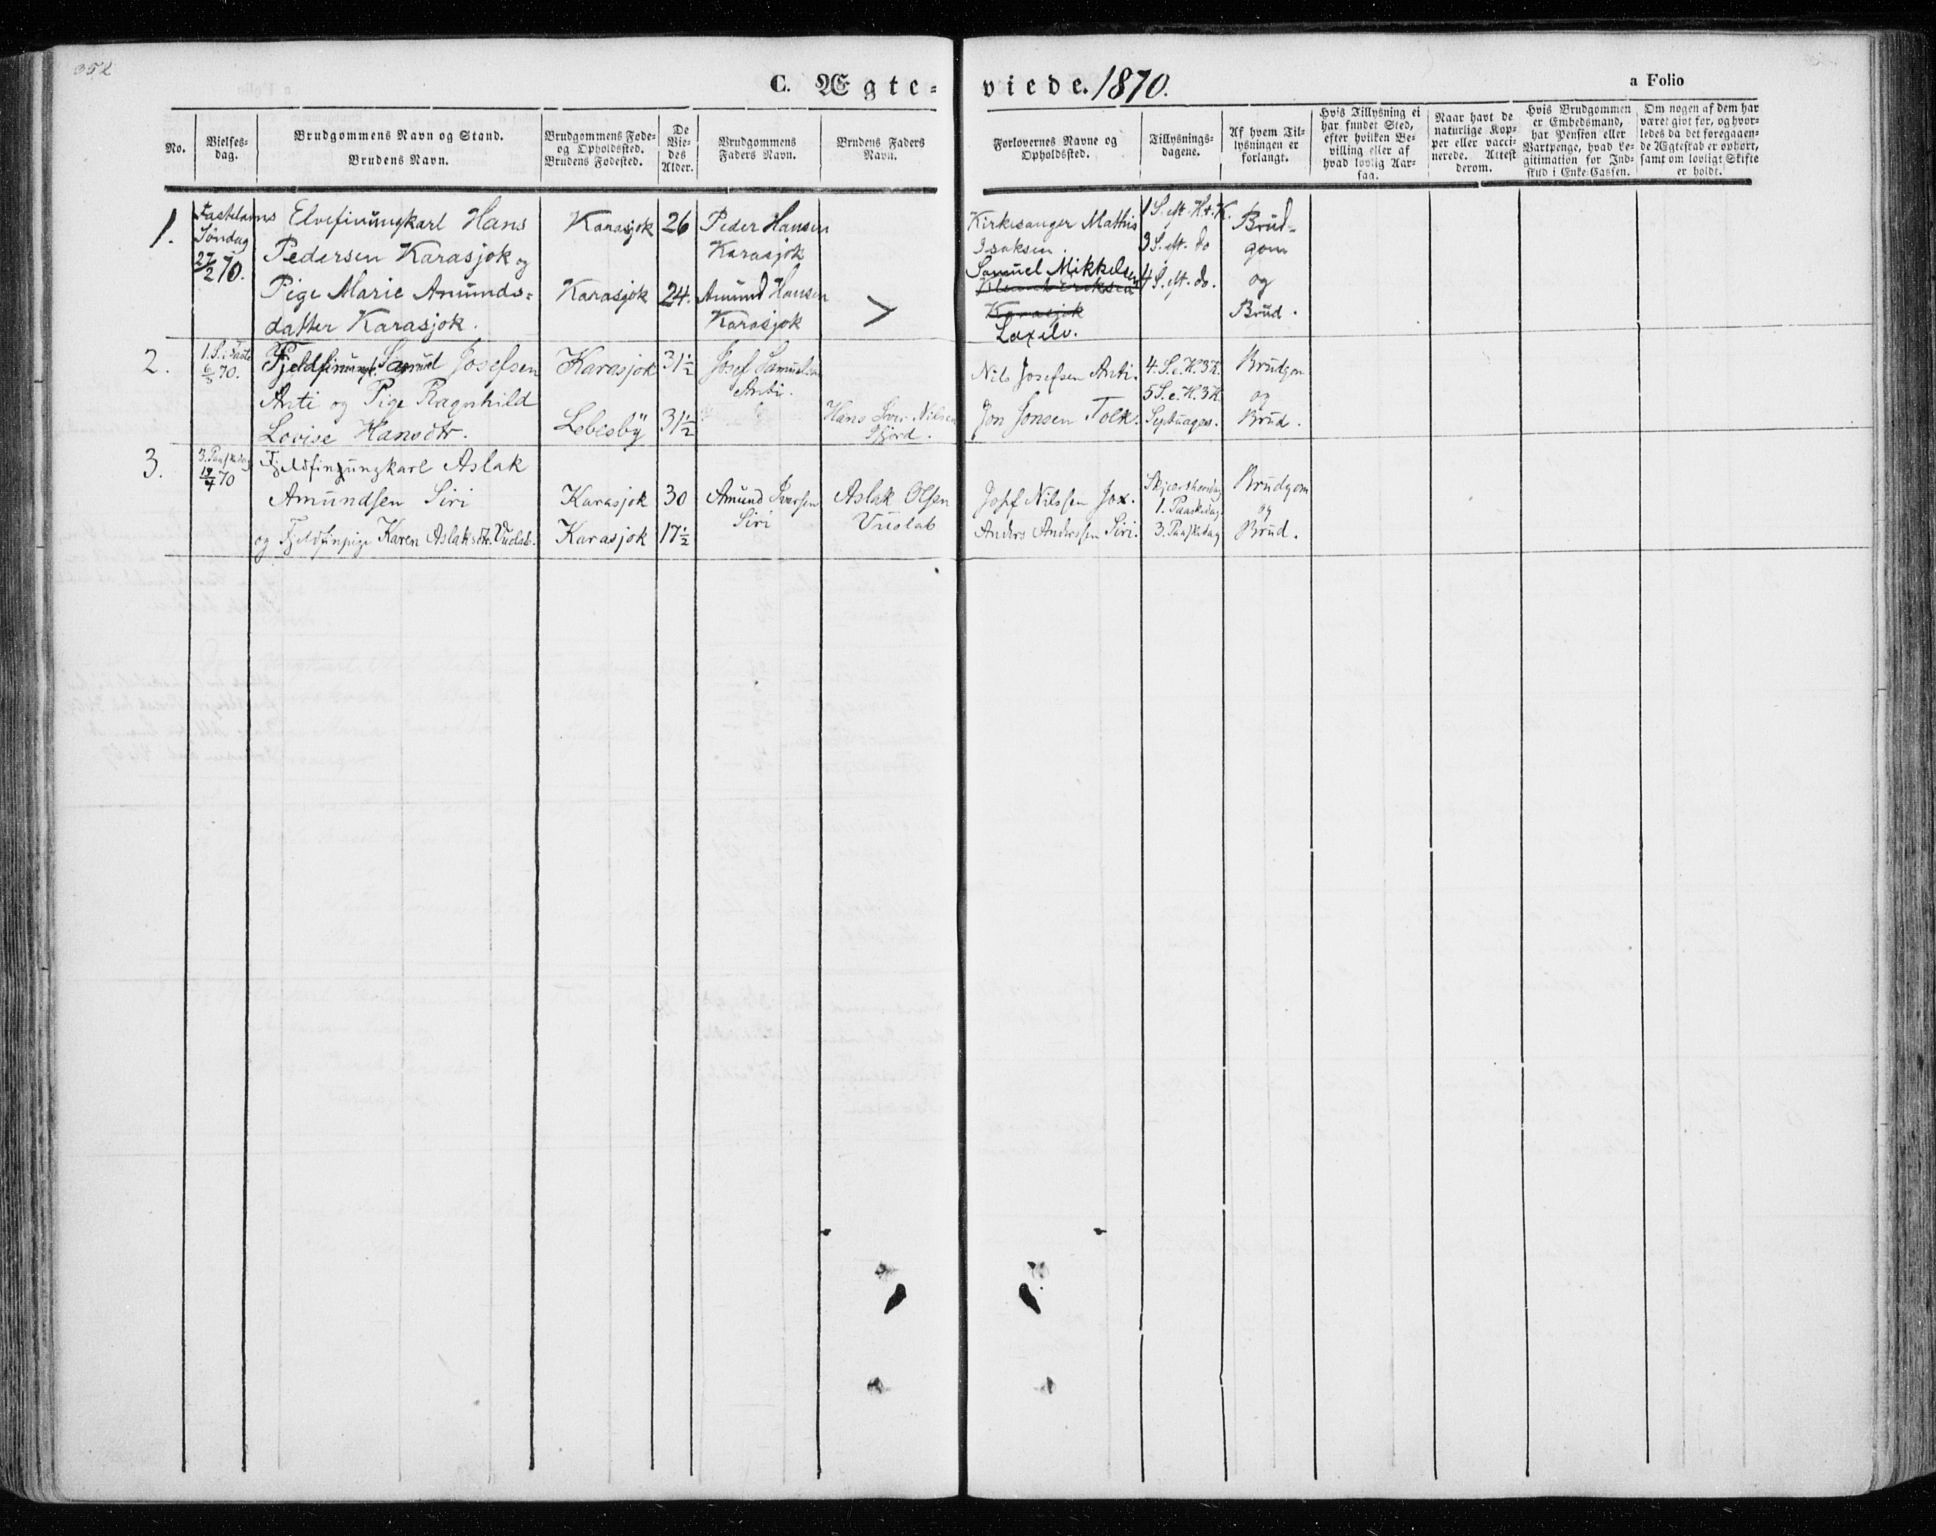 352
C. Ægteviede. 1870.
a Folio
No.
Vielses-
dag.
Brudgommens Navn og Stand.
Brudens Navn.
Brudgommens Fode-
og Opholdssted.
Brudens Fodested.
De
Vie-
des
Alder.
Brudgommens
Faders Navn.
Brudens Faders
Navn.
Forlovernes Navne og
Opholdsted.
Tillysnings-
dagene.
Af hvem Til-
lysningen er
forlangt.
Hvis Tillysning ei
har fundet Sted,
efter hvilken Be-
villing eller af
hvad lovlig Aar-
sag.
Naar havt de
naturlige Kop-
per eller vacci-
nerede. Attest
derom.
Hvis Brudgommen
er Embedsmand,
har Pension eller
Vartpenge, hvad Le-
gitimation for Ind-
skud i Enke-Cassen.
Om nogen af dem har
været givt for, og hvor-
ledes da det foregaaen-
de Ægteskab er ophørt,
samt om lovligt Skifte
er holdt.
1.
Fastelavns
Søndag
27/2 70.
Elvefinungkarl Hans
Pedersen Karasjok og
Pige Marie Amunds-
datter Karasjok.
Karasjok
Karasjok
26
24.
Peder Hansen
Karasjok
Amund Hansen
Karasjok
Kirkesanger Mathis
Isaksen.
Samuel Mikkelsen
Karasjok
Laxelv.
1 S. eft. H.t.K.
3 S. eft. do
4 S. eft. do.
Brud-
gom
og
Brud.
2.
1. S. i Faste
6/3 70.
Fjeldfinungk. Samuel Josefsen
Anti og Pige Ragnhild
Lovise Hansdtr.
Karasjok
Lebesby
31½
31½
Josef Samuelsen
Anti.
Hans Iver Nilsen
Fjord.
Nils Josefsen Anti.
Jon Jonsen Tolk.
4. S. e. H. 3 K.
5 S. e. H. 3 K.
Septuages.
Brudgom
og
Brud.
3.
3. Paaskedag
19/4 70
Fjeldfinungkarl Aslak
Amundsen Siri
og Fjeldfinpige Karen Aslaksdtr. Vuolab.
Karasjok
Karasjok
30
17½
Amund Iversen
Siri
Aslak Olsen
Vuolab
Josef Nilssen Jox.
Anders Anderssen Siri.
Skjærthorsdag
1. Paaskedag
3. Paaskedag
Brudgom
og
Brud.